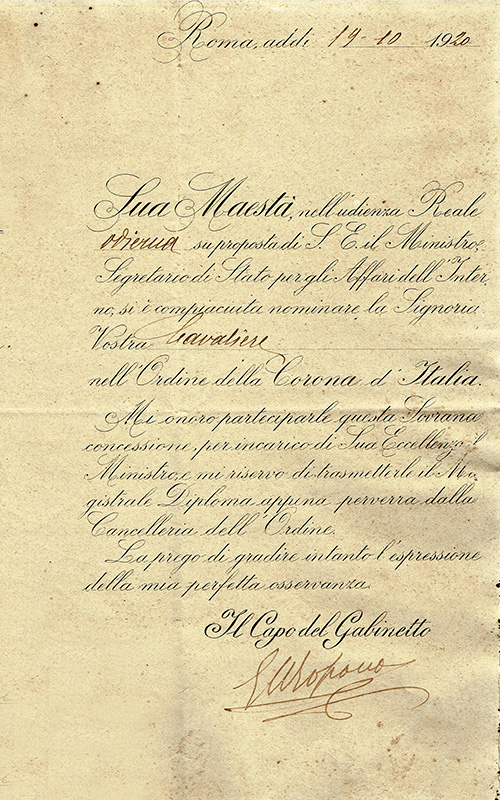 Roma, addì 19-10 1920
Sua Maestà, nell'udienza Reale
odierna su proposta di S. E. il Ministro,
Segretario di Stato per gli Affari dell'Inter
no, si è compiaciuta nominare la Signoria
Vostra Cavaliere
nell'Ordine della Corona d'Italia.
Mi onoro parteciparle questa Sovrana
concessione, per incarico di Sua Eccellenza il
Ministro, e mi riservo di trasmetterle il Ma
gistrale Diploma appena perverrà dalla
Cancelleria dell'Ordine.
La prego di gradire intanto l'espressione
della mia perfetta osservanza.
Il Capo del Gabinetto